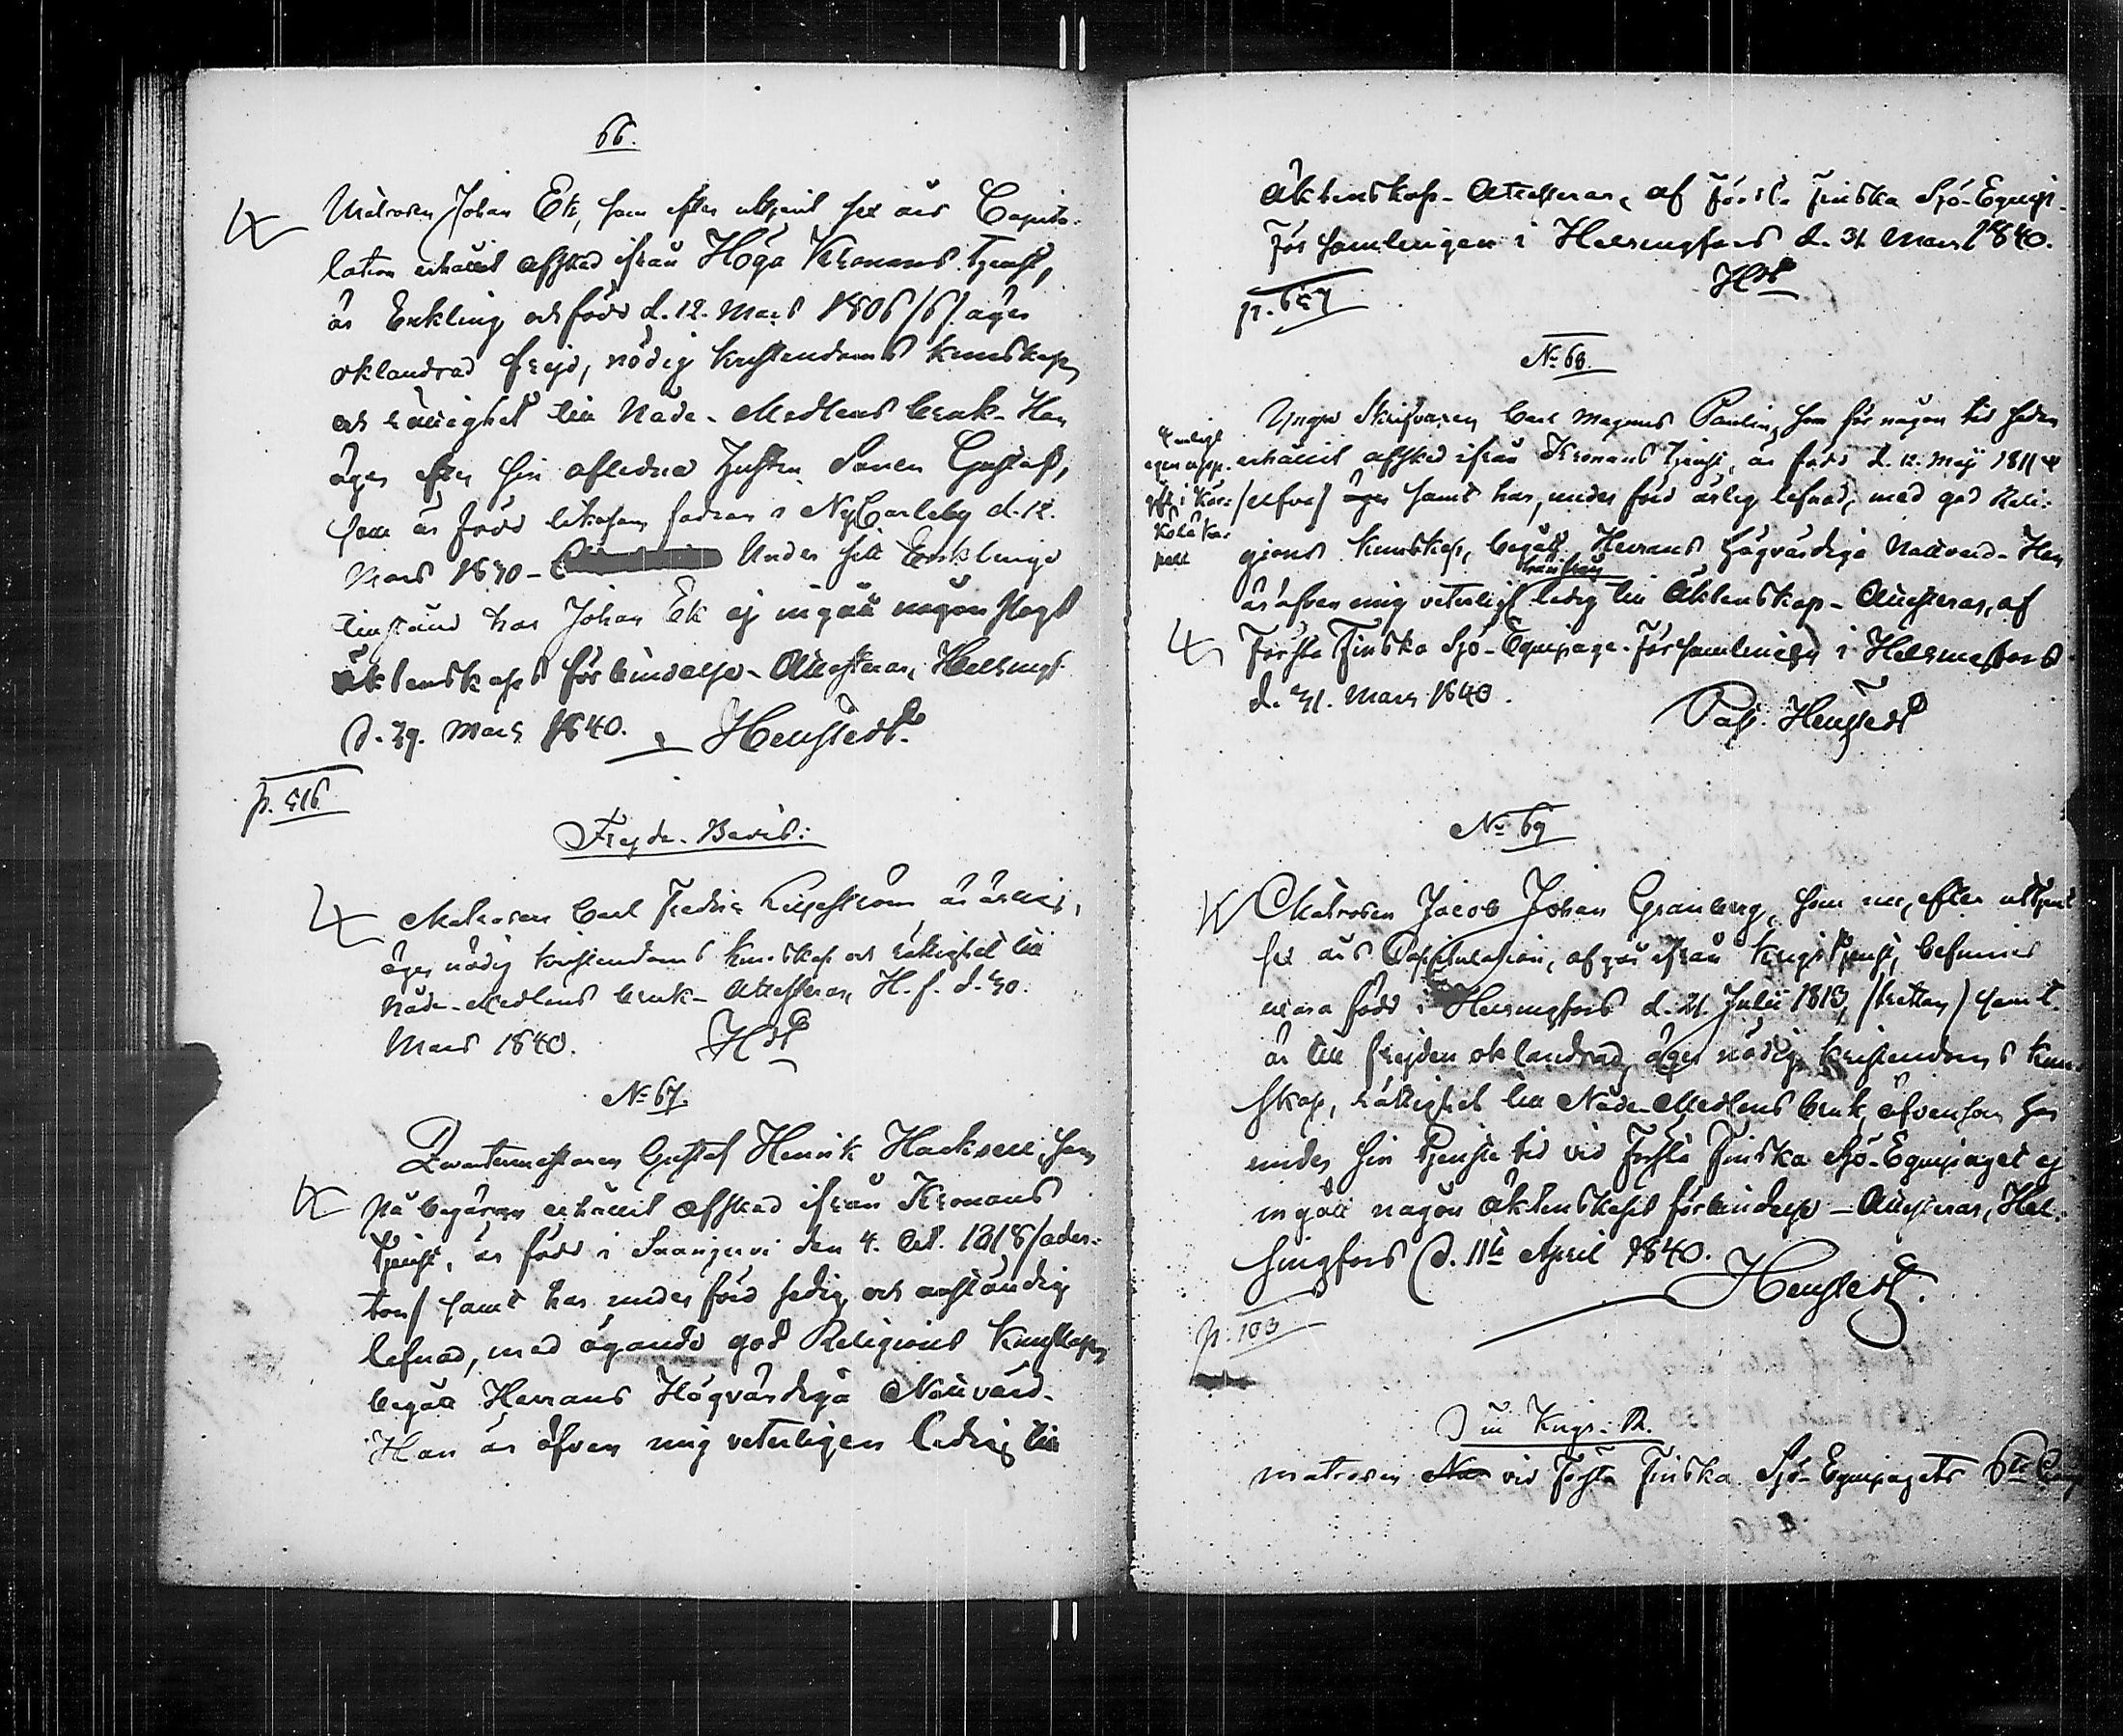 66.
Matrosen Johan Ek, som efter uttjent sex års Capitu-
lation erhållit afsked ifrån Höga Kronans Tjenst,
är Enkling och född d. 12. Mars 1806 /6/ äger
oklandrad frejd, nödig kristendoms kunskap
och rättighet till Nåde-Medlens bruk- Han
äger efter sin aflidna Hustru Sonen Gustaf,
som är född i NyCarleby d. 12.
Mars 1830 - Under sitt Enklings
tillstånd har Johan Ek ej ingått någon slags
äktenskaps förbindelse - Attesteras, Helsingf.
d. 29. Mars 1840. Henstedt.
p. 516
Frejde-Bevis:
Matrosen Carl Fredric är ärlig,
äger nödig kristendoms kunskap och rättighet till
Nåde-Medlens bruk - Attesteras, H.f. d. 30.
Mars 1840. Hdt
No 67.
Quartermästaren Gustaf Henrik Hacksell, som
på begäran erhållit afsked ifrån Kronans
Tjenst, är född i Saarijervi den 4. Oct. 1818 /ader-
ton/ samt har under förd sedig och anständig
lefnad, med ägande god Religions kunskap,
begått Herrans Högvärdiga Nattvard-
Han är äfven mig veterligen ledig till
äktenskap - Attesteras, af Första Finska Sjö-Equip.
Församlingen i Helsingfors d. 31. Mars 1840.
Hdt
p. 657
No 68.
Yngre Skrifvaren Carl Magnus Paulin, som för någon tid sedan
Enligt
egen upp- erhållit afsked ifrån Kronans Tjenst, är född d. 12. Maji 1811
gift i Kar- /elfva/ äger samt har, under förd ärlig lefnad, med god Reli-
kola Ka-
pell gions kunskap, begått Herrans Högvärdiga Nattvard- Han
är äfven mig veterligt ledig till Äktenskap - Attesteras, af
Första Finska Sjö-Equipage-Församlingen i Helsingfors
d. 31. Mars 1840.
Past. Henstedt
No 69
Matrosen Jacob Johan Granberg, som nu, efter uttjent
sex års Capitulation, afgår ifrån krigstjenst, befinnes
vara född i Helsingfors d. 21. Julii 1813, /tretton/ samt
är till frejden oklandrad, äger nödig kristendoms kun-
skap, rättighet till Nåde-Medlens bruk, äfvensom har
under sin Tjenste tid vid Första Finska Sjö-Equipaget ej
ingått någon äktenskaps förbindelse - Attesteras, Hel-
singfors d. 11te April 1840.
Henstedt.
p. 103
Till Krigs-R.
Matrosen vid Första Finska Sjö-Equipagets 6te Comp